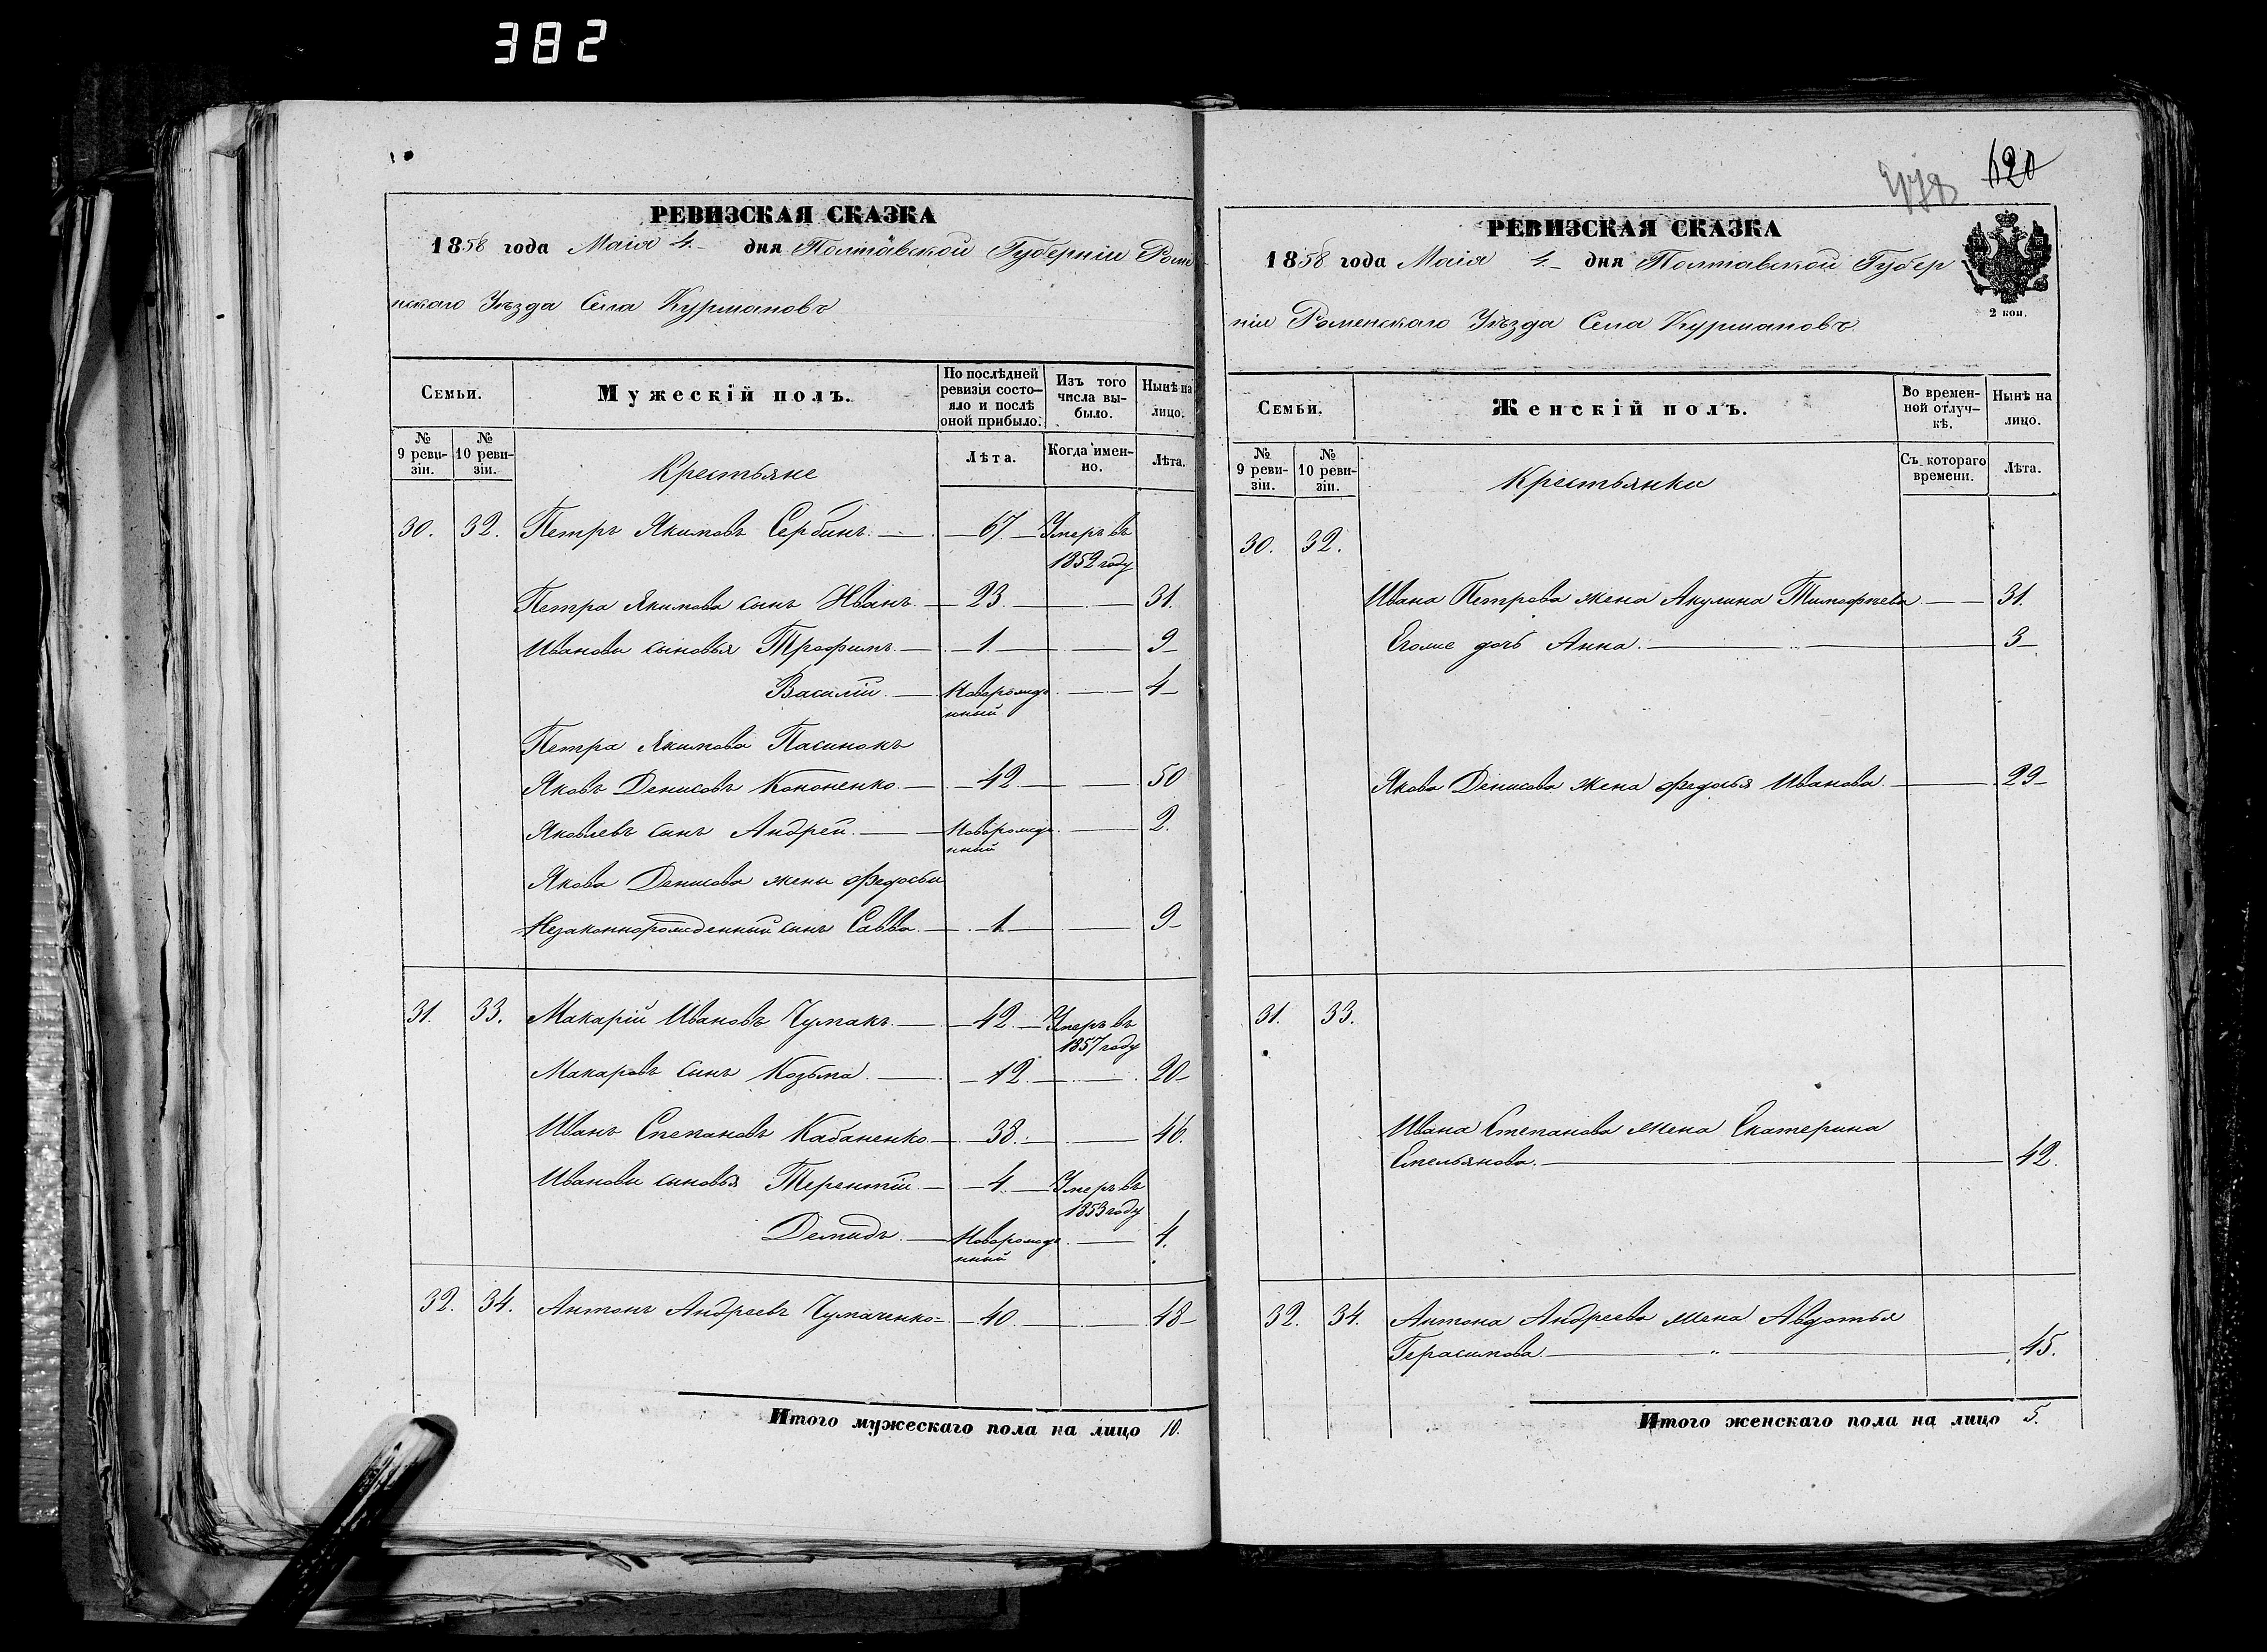 382
РЕВИЗСКАЯ СКАЗКА
1858 года Маія 4 дня Полтавской Губерніи Роме
нскаго Уѣзда Села Курмановъ
Семьи.
Мужескій полъ.
По послѣдней ревизіи состо-яло и послѣ оной прибыло.
Изъ того числа вы-было.
Нынѣ на лицо.
№ 9 реви-зіи.
№ 10 реви-зіи.
Крестьяне
Лѣта.
Когда имен-но.
Лѣта.
30. 32. Петръ Якимовъ Сербинъ. 67. Умеръ въ
1852 году
Петра Якимова сынъ Иванъ. 23. 31.
Ивановы сыновья Трофимъ. 1. 9
Василій. Новорожде 4
нный
Петра Якимова Пасинокъ
Яковъ Денисовъ Кононенко. 42. 50
Яковлевъ сынъ Андрей. Новорожде 2.
нный
Якова Денисова жены Федосьи
Незаконнорожденный сынъ Савва. 1. 9
31. 33. Макарій Ивановъ Чумакъ. 42. Умеръ въ
1857 году
Макаровъ сынъ Козьма. 12. 20
Иванъ Степановъ Кабаненко 38. 46.
Ивановы сыновья Терентій. 4. Умеръ въ
1853 году
Демидъ. Новорожде 4.
нный
32. 34. Антонъ Андреевъ Чумаченко 40. 48
Итого мужескаго пола на лицо 10.
620
РЕВИЗСКАЯ СКАЗКА
1858 года Маія 4 дня Полтавской Губер
ніи Роменскаго Уѣзда Села Курмановъ.
2 коп.
Семьи.
Женскій полъ.
Во времен-ной отлуч-кѣ.
Нынѣ на лицо.
№ 9 реви-зіи.
№ 10 реви-зіи.
Крестьянки
Съ котораго времени.
Лѣта.
30. 32.
Ивана Петрова жена Акулина Тимофѣева 31.
Егоже дочь Анна. 3
Якова Денисова жена Федосья Иванова. 29
31. 33.
Ивана Степанова жена Екатерина
Емельянова. 42.
32. 34. Антона Андреева жена Авдотья
Герасимова. 45.
Итого женскаго пола на лицо 5.